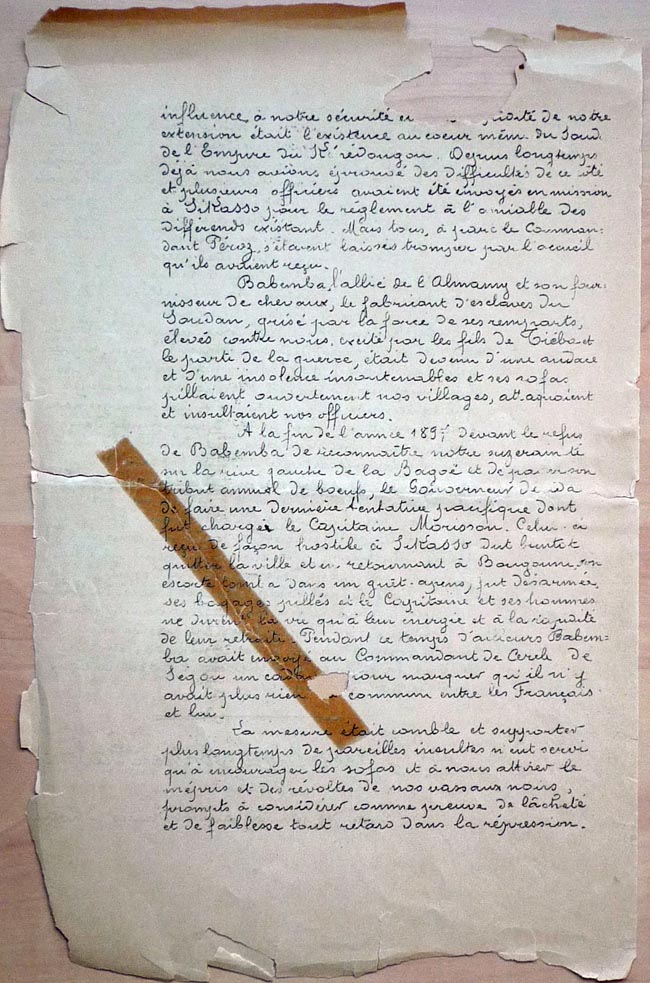 influence à notre sécurité et idité de notre
extension était l'existence au coeur mêm. du Soud.
de l'Empire du Kénédougou. Depuis longtemps
déjà nous avions éprouvé des difficultés de ce côté
et plusieurs officiers avaient été envoyés en mission
à Sikasso pour le réglement à l'amiable des
différends existant. Mais tous, à part le Comman-
dant Péroz, s'étaient laissés tromper par l'accueil
qu'ils avaient reçu.
Babemba, l'allié de l'Almamy et son four-
nisseur de chevaux, le fabricant d'esclaves du
Soudan, grisé par la force de ses remparts,
élevés contre nous, excité par les fils de Tiéba et
le parti de la guerre, était devenu d'une audace
et d'une insolence insoutenables et ses sofas
pillaient ouvertement nos villages, attaquaient
et insultaient nos officiers.
A la fin de l'année 1897 devant le refus
de Babemba de reconnaître notre suzeraineté
sur la rive gauche de la Bagoé et de payer son
tribut annuel de boeufs, le Gouverneur décida
de faire une dernière tentative pacifique dont
fut chargé le Capitaine Morisson. Celui-ci
reçu de façon hostile à Sikasso dut bientôt
quitter la ville et en retournant à Bougouni, son
escorte tomba dans un guet-apens, fut désarmée,
ses bagages pillés et le Capitaine et ses hommes
ne durent la vie qu'à leur énergie et à la rapidité
de leur retraite. Pendant ce temps d'ailleurs Babem-
ba avait envoyé au Commandant de Cercle de
Ségou un cada pour marquer qu'il n'y
avait plus rien commun entre les Français
et lui.
La mesure était comble et supporter
plus longtemps de pareilles insultes n'eut servi
qu'à encourager les sofas et à nous attirer le
mépris et des révoltes de nos vassaux noirs,
prompts à considérer comme preuve de lâcheté
et de faiblesse tout retard dans la répression.